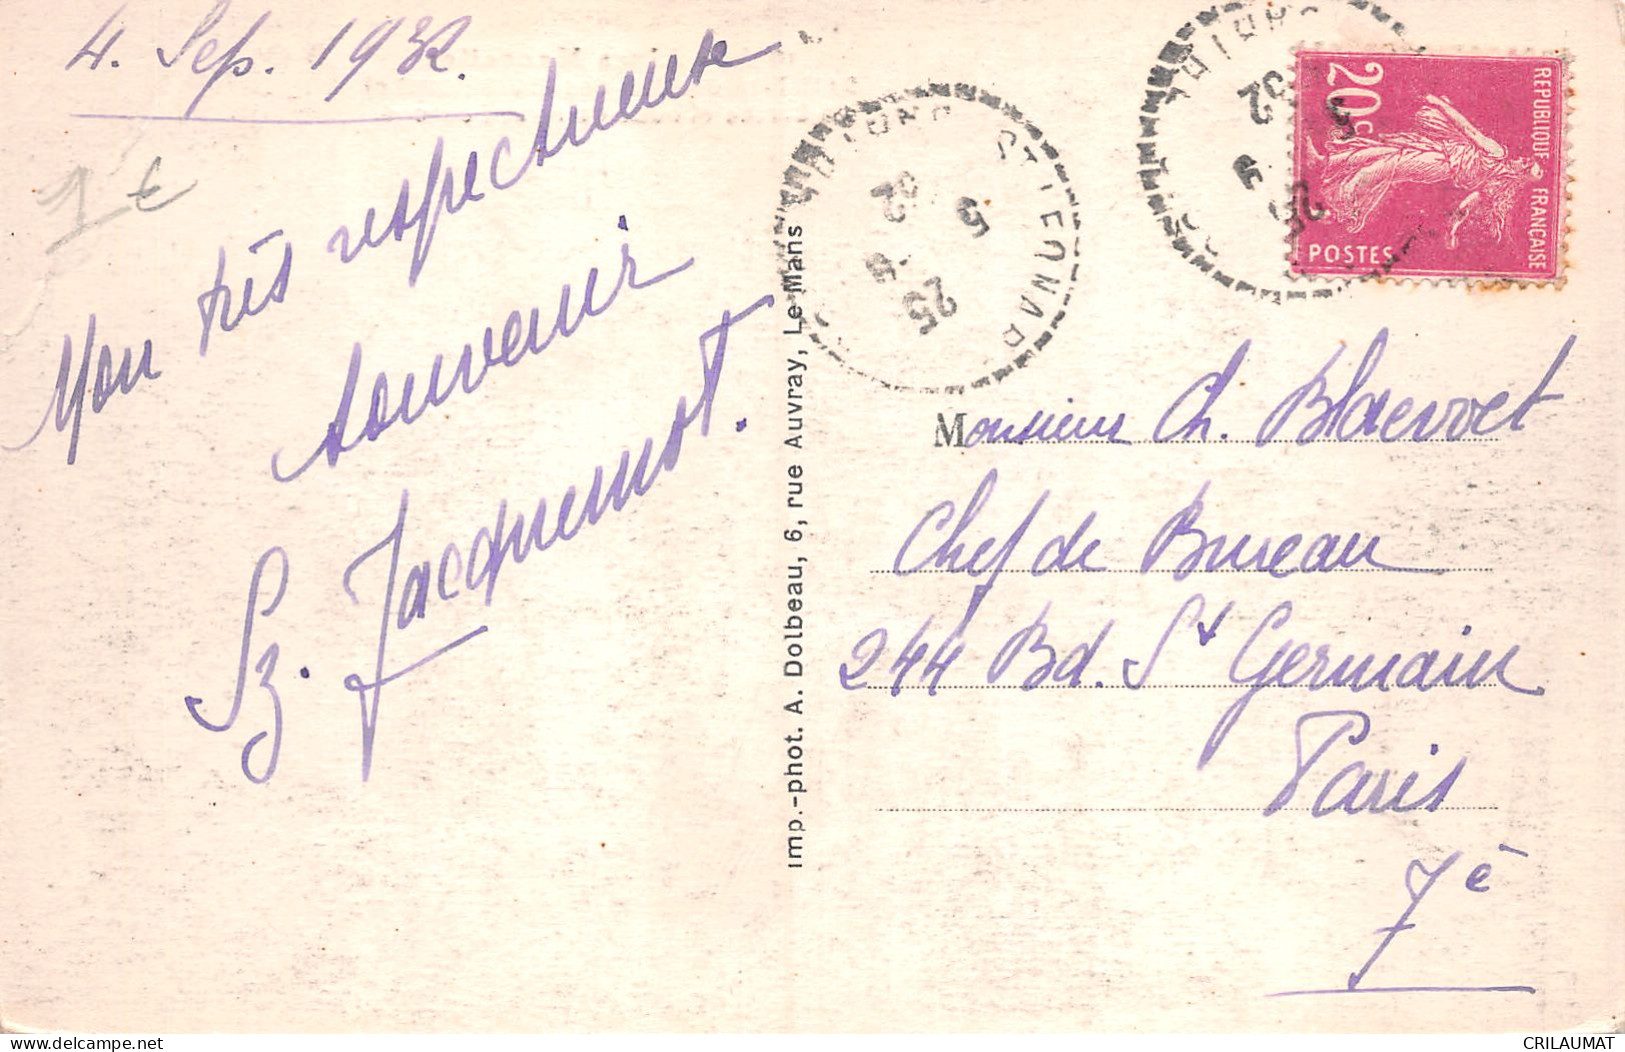 4. Sep. 1932.
1 €
Mon très respectueux
souvenir
Sz. Jacquemot.
Imp.-phot. A. Dolbeau, 6, rue Auvray, Le Mans
25
5 - 9
32
REPUBLIQUE FRANCAISE
20 c.
POSTES
Monsieur Ch. Blaevoet
Chef de Bureau
244 Bd. St Germain
Paris
7è
delcampe.net
CRILAUMAT